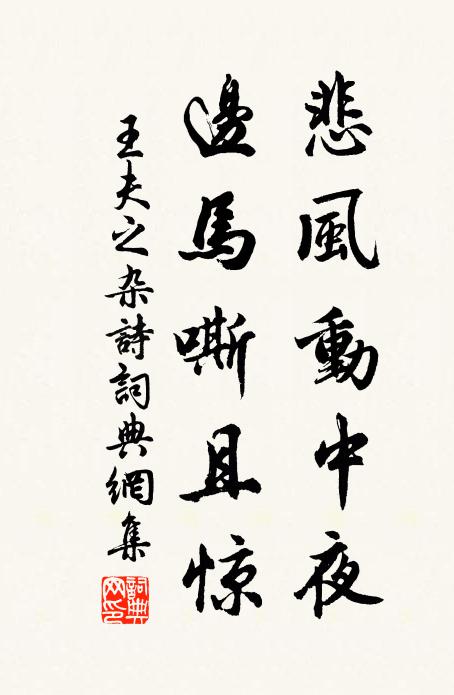 悲風動中夜
邊馬嘶且惊
王夫之杂詩詞典網集
詞典网印